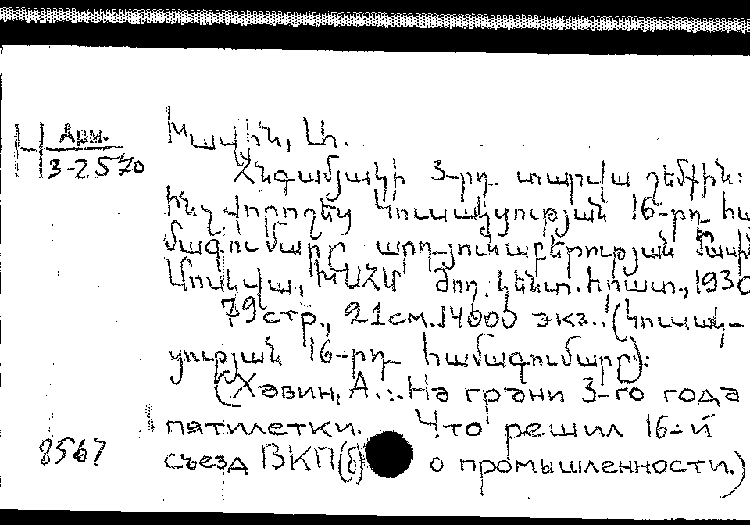 Арм.
3-2570
Խավին, Ա.
Հնգամյակի 3-րդ տարվա շեմքին:
Ինչ վորոշեց Կուսակցության 16-րդ հա
մագումարը արդյունաբերության մասին
Մոսկվա, ԽՍՀՄ ժող. կենտ. հրատ., 1930
79 стр., 21 см. 14000 экз. (Կուսակ-
ցության 16-րդ համագումարը):
(Хавин, А.: На грани 3-го года
пятилетки. Что решил 16-й
8567
съезд ВКП(б) о промышленности.)